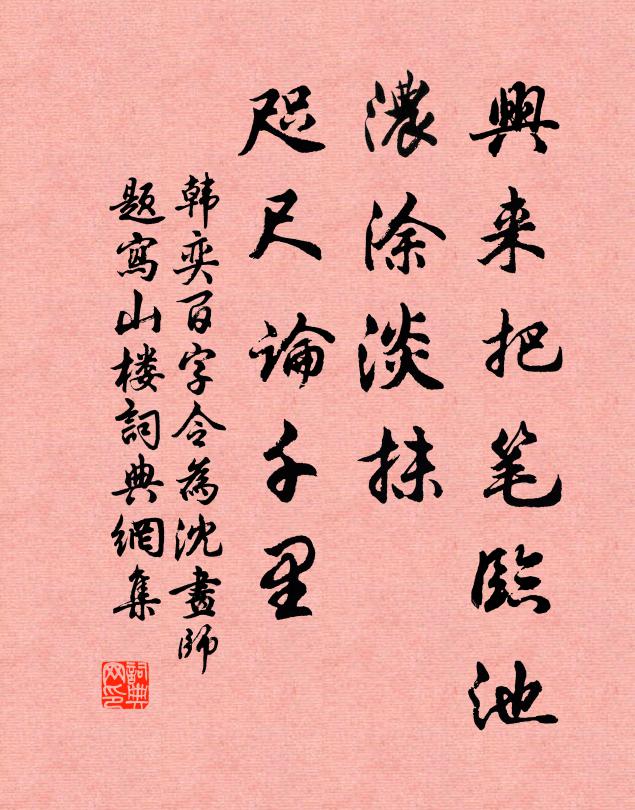 興来把笔臨池
濃涂淡抹
咫尺論千里
韩奕百字令為沈畫師
题寫山楼詞典網集
詞典
网印